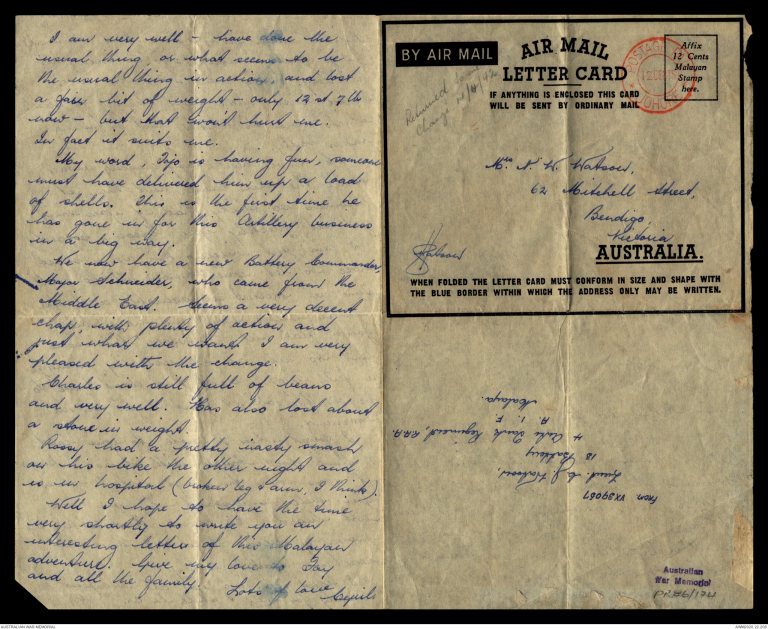 I am very well - have done the
usual thing, or what seems to be
the usual thing in action, and lost
a fair bit of weight - only 12 st. 7 lb
now - but that won't hurt me.
In fact it suits me.
My word, Tojo is having fun, someone
must have delivered him up a load
of shells. This is the first time he
has gone in for this Artillery business
in a big way.
We now have a new Battery Commander,
Major Schneider, who came from the
Middle East. Seems a very decent
chap, with plenty of action and
just what we want. I am very
pleased with the change.
Charles is still full of beans
and very well. Has also lost about
a stone in weight.
Rossy had a pretty nasty smash
on his bike the other night and
is in hospital (broken leg & arm, I think).
Well I hope to have the time
very shortly to write you an
interesting letter of this Malayan
adventure. Give my love to Joy
and all the family.
Lots of love
BY AIR MAIL
AIR MAIL
LETTER CARD
IF ANYTHING IS ENCLOSED THIS CARD
WILL BE SENT BY ORDINARY MAIL
Affix
12 Cents
Malayan
Stamp
here.
Returned
Mrs N. W. Watson,
62 Mitchell Street,
Bendigo,
Victoria
AUSTRALIA.
WHEN FOLDED THE LETTER CARD MUST CONFORM IN SIZE AND SHAPE WITH
THE BLUE BORDER WITHIN WHICH THE ADDRESS ONLY MAY BE WRITTEN.
From VX39069
Lieut. C. J. Watson,
13 Battery
4 Anti Tank Regiment, R.A.A.
A. I. F.
Malaya.
Australian
War Memorial
PR86/174
AUSTRALIAN WAR MEMORIAL